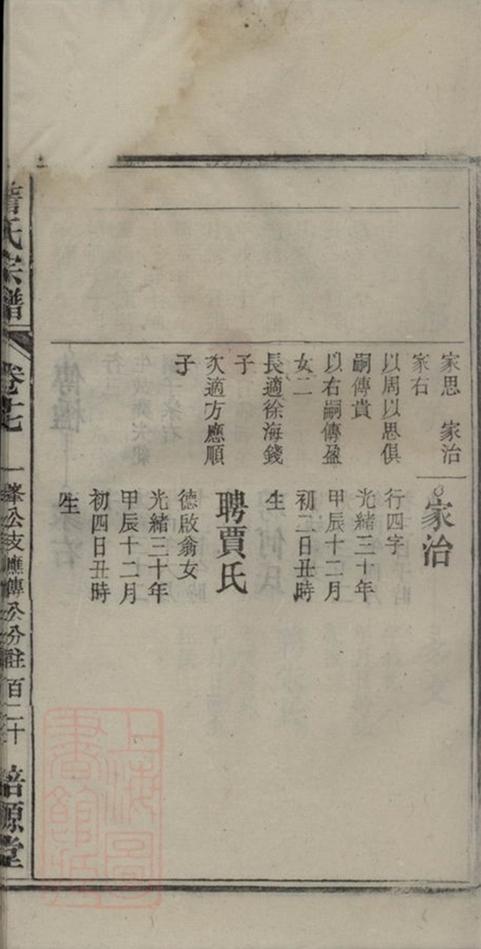 家思　家治
家右
以周以思俱
嗣傳貴
以右嗣傳盈
女二
長適徐海錢
子
次適方應順
子
家治
行四字
光緒三十年
甲辰十二月
初二日丑時
生
聘賈氏
德啟翁女
光緒三十年
甲辰十二月
初四日丑時
生
氏宗譜
卷十七
公支應傳公分註
百二十
培源堂
上海圖書館藏